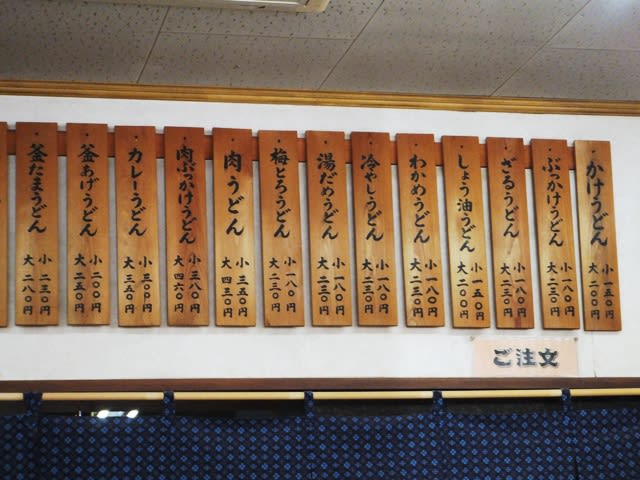 かけうどん
小 一五〇円
大 二〇〇円
ぶっかけうどん
小 一八〇円
大 二三〇円
ざるうどん
小 一八〇円
大 二三〇円
しょう油うどん
小 一五〇円
大 二〇〇円
わかめうどん
小 一八〇円
大 二三〇円
冷やしうどん
小 一八〇円
大 二三〇円
湯だめうどん
小 一八〇円
大 二三〇円
梅とろうどん
小 一八〇円
大 二三〇円
肉うどん
小 三五〇円
大 四三〇円
肉ぶっかけうどん
小 三八〇円
大 四六〇円
カレーうどん
小 三〇〇円
大 三五〇円
釜あげうどん
小 二〇〇円
大 二五〇円
釜たまうどん
小 二三〇円
大 二八〇円
ご注文